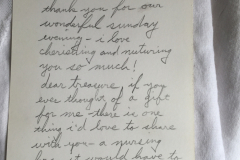 thank you for our
wonderful sunday
evening - i love
cherishing and nuturing
you so much!
dear treasure, if you
ever thought of a gift
for me - there is one
thing i'd love to share
with you - a nursing
it would have to